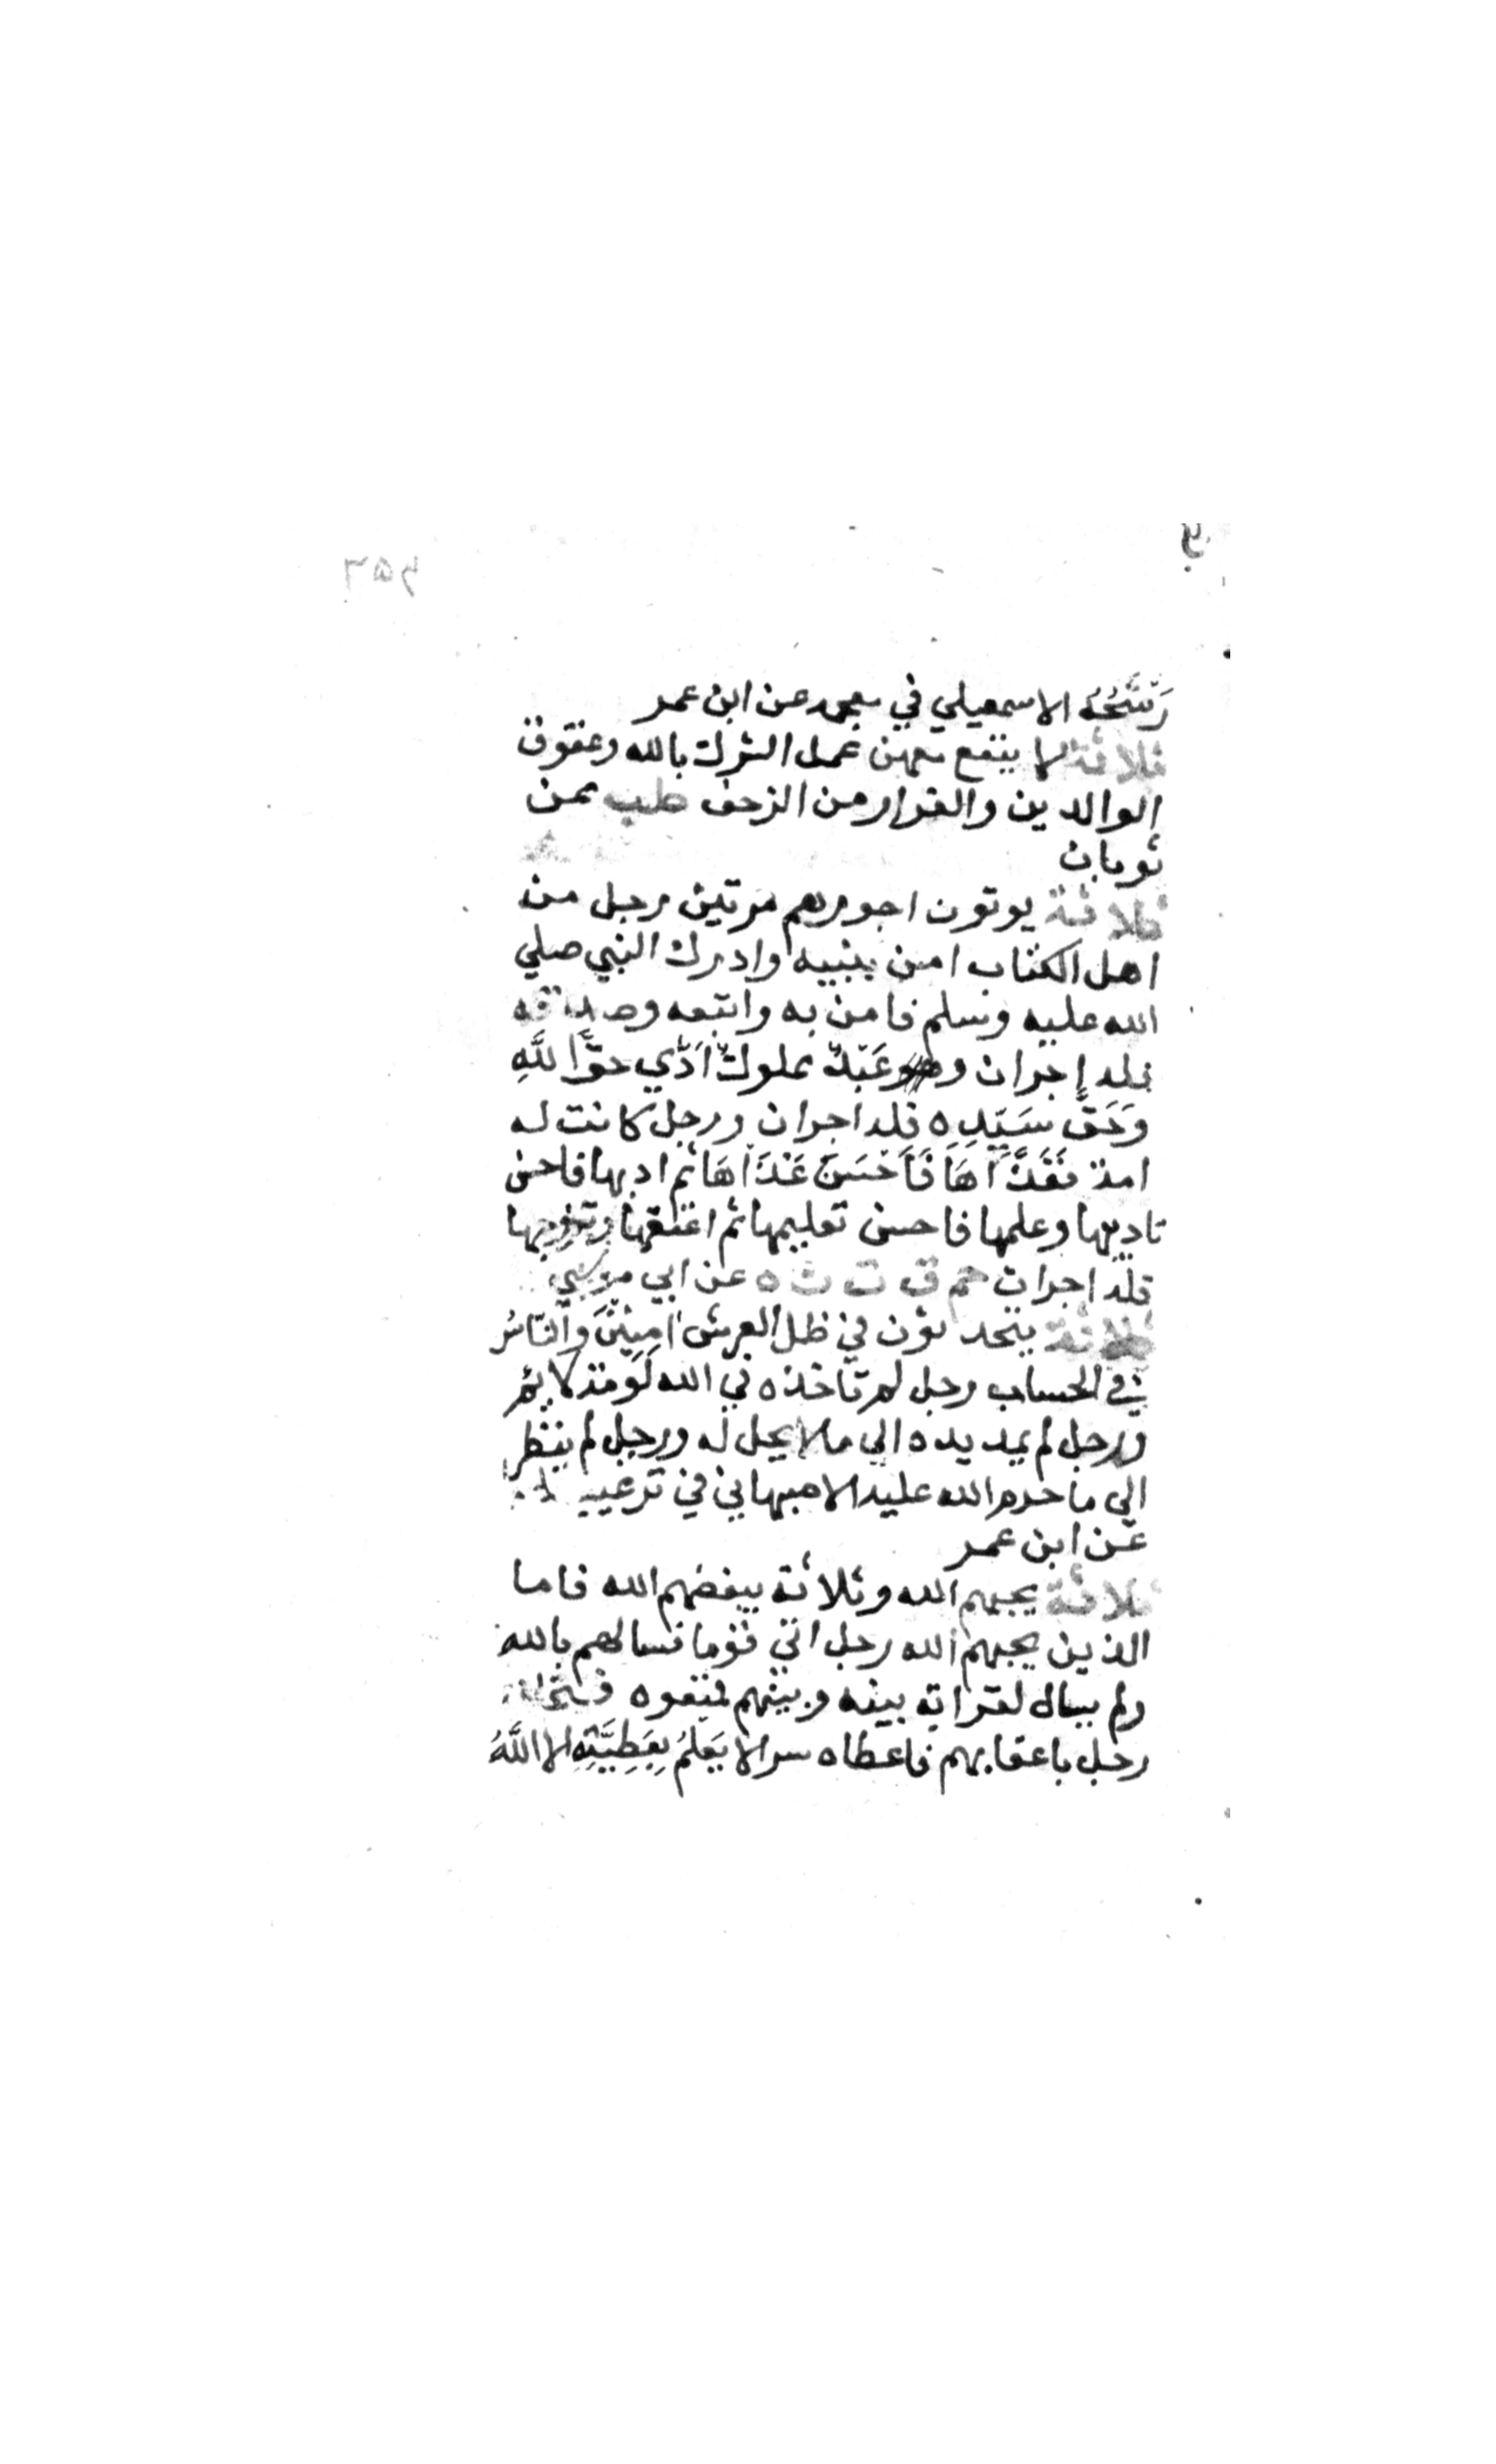 رَشَحُهُ الاسمعيلي في معجمه عن ابن عمر
ثلاثة لا ينفع معهن عمل الشرك بالله وعقوق
الوالدين والفرار من الزحف طب عن
ثوبان
ثلاثة يوتون اجورهم مرتين رجل من
اهل الكتاب امن بنبيه وادرك النبي صلي
الله عليه وسلم فامن به واتبعه وصدقه
فله اجران وعَبْدٌ مملوكٌ اَدَّي حقَّ اللَّهِ
وَحَقَّ سَيِّدِه فله اجران ورجل كانت له
امة فَغَذَّاهَا فَاَحْسَنَ غَذَاهَا ثم ادبها فاحسن
تاديبها وعلمها فاحسن تعليمها ثم اعتقها وتزوجها
فله اجران حم ق ت ن ه عن ابي موسي
ثلاثة يتحدثون في ظل العرش امِنِيْنَ والنَّاسُ
في الحساب رجل لم تاخذه في الله لَوْمَة لايم
ورجل لم يمد يده الي ما لا يحل له ورجل لم ينظر
الي ما حرم الله عليه الاصبهاني في ترغيبه
عن ابن عمر
ثلاثة يحبهم الله وثلاثة يبغضهم الله فاما
الذين يحبهم الله رجل اتي قوما فسالهم بالله
ولم يسال لقرابة بينه وبينهم فمنعوه فتخلف
رجل باعقابهم فاعطاه سرا لا يَعْلَمُ بِعَطِيَّتِهِ الا اللَّهُ